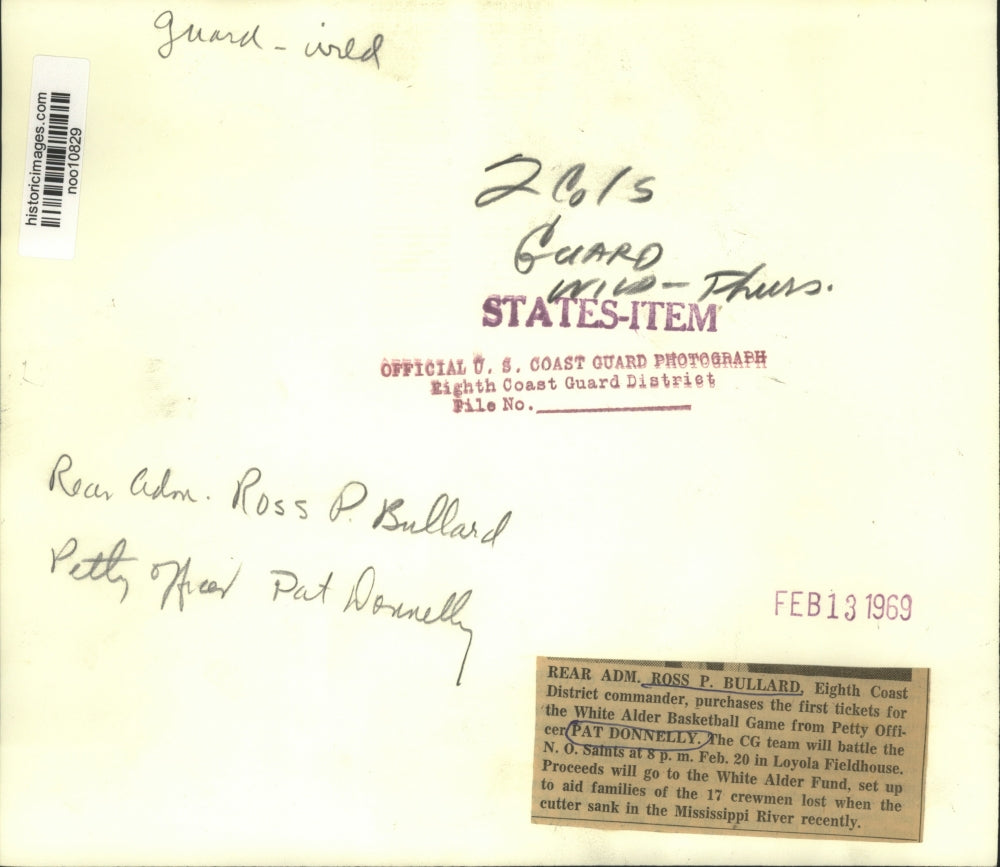 guard - wild
historicimages.com
noo10829
2 Cols
GUARD
WILD - Thurs.
STATES-ITEM
OFFICIAL U. S. COAST GUARD PHOTOGRAPH
Eighth Coast Guard District
File No.
Rear Adm. Ross P. Bullard
Petty Officer Pat Donnelly
FEB 13 1969
REAR ADM. ROSS P. BULLARD, Eighth Coast
District commander, purchases the first tickets for
the White Alder Basketball Game from Petty Offi-
cer PAT DONNELLY. The CG team will battle the
N. O. Saints at 8 p. m. Feb. 20 in Loyola Fieldhouse.
Proceeds will go to the White Alder Fund, set up
to aid families of the 17 crewmen lost when the
cutter sank in the Mississippi River recently.